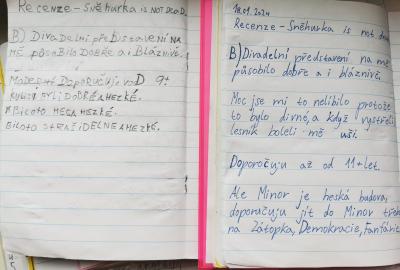 Recenze - Sněhurka is not dead
B) Divadelní představení na
mě působilo dobře a i bláznivě.
Doporučuju od 9+
byli dobré a hezké.
bylo to mega hezké.
bylo to strašidelné a hezké.
18.01.2024
Recenze - Sněhurka is not dea
B) Divadelní představení na mě
působilo dobře a i bláznivě.
Moc jse mi to nelíbilo protože
to bylo divné, a když vystřeli
lesník boleli mě uši.
Doporočuju až od 11+let.
Ale Minor je heská budova,
doporučuju jít do Minor třeba
na Zátopka, Demokracie, Fantárie